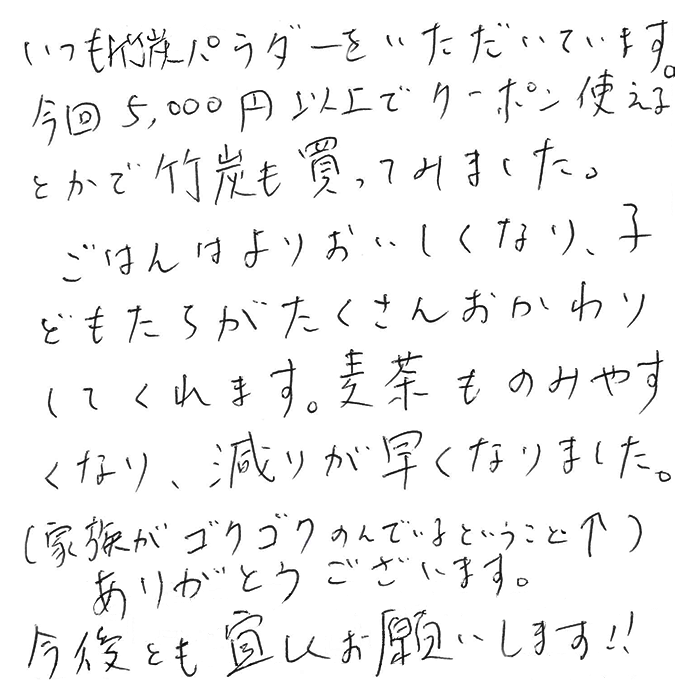 いつも竹炭パウダーをいただいています。
今回5,000円以上でクーポン使える
とかで竹炭も買ってみました。
ごはんはよりおいしくなり、子
どもたちがたくさんおかわり
してくれます。麦茶ものみやす
くなり、減りが早くなりました。
(家族がゴクゴクのんでいるということ↑)
ありがとうございます。
今後とも宜しくお願いします!!